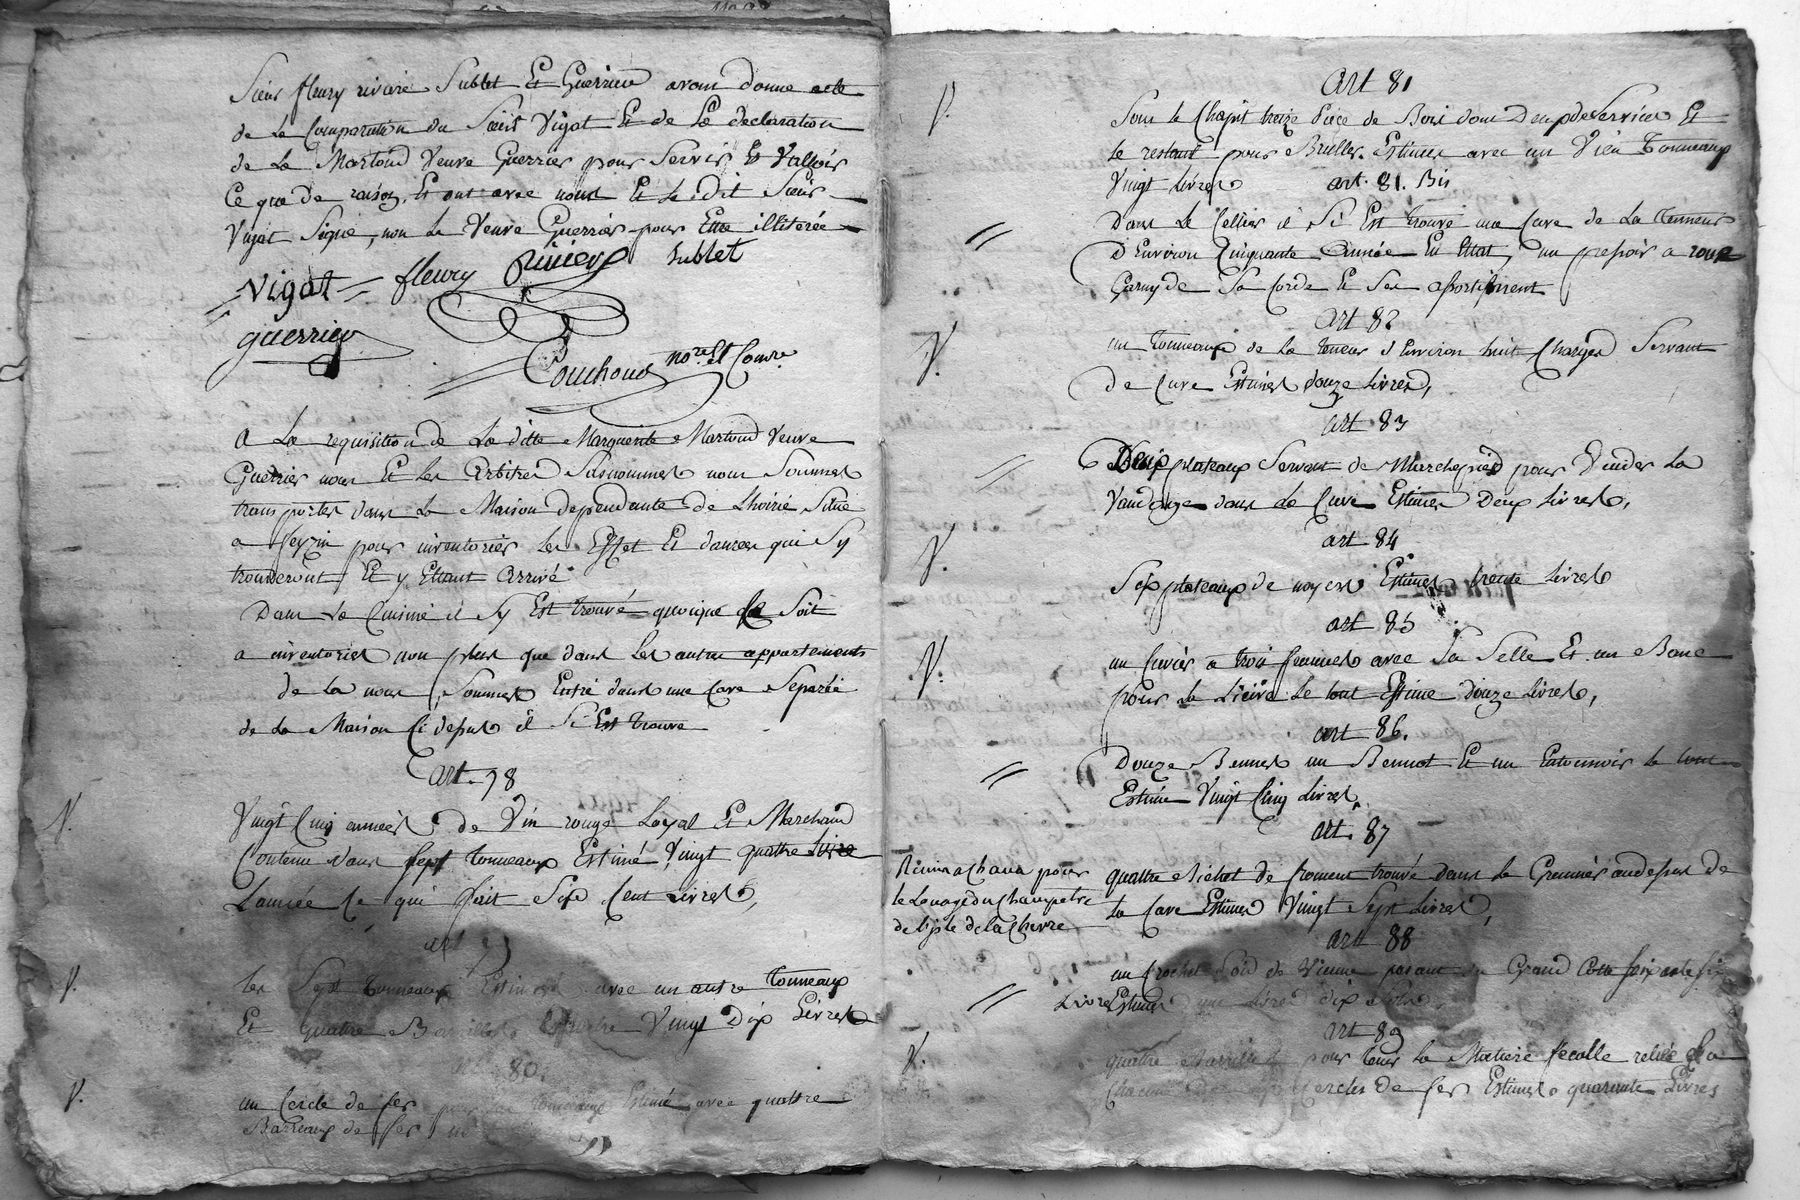 Sieur fleury riviere Sublet Et Guerrier avons donne acte
de La Comparution du Sieur Vigat Et de La declaration
de La Martoud Veuve Guerrier pour Servir Et Valloir
Ce que De raison, Et ont avec nous Et Le dit Sieur
Vigat Signé, non La Veuve Guerrier pour Etre illitérée
Vigat fleury Riviere Sublet
guerrier
Couchoud nore Et Comre
A La requisition de La ditte Marguerite Martoud Veuve
Guerrier nous Et Les Arbitres Susnommes nous Sommes
transportes dans La Maison dependante de Lhoirié Situé
a feyzin pour inventorier Les Effet Et danrées qui Sy
trouveront Et y Ettant Arrivé
Dans La Cuisine il Sy Est trouvé quoique Ce Soit
a inventorier non plus que dans Les autre appartements
de La nous Sommes Entré dans une Cave Separée
de La Maison Ci depus il Si Est trouve
art. 78
V.
Vingt Cinq années de Vin rouge Loyal Et Marchand
Contenu dans Sept tonneaux Estimé Vingt quattre Livre
Lannée Ce qui fait Six Cent Livres,
art 79
V.
Les Sept tonneaux Estimes avec un autre tonneaux
Et quattre Barrilles Vingt Dix Livres
80.
V.
un Cercle de fer pour Les tonneaux Estimé avec quattre
Barreaux de fer
art 81
V.
Sous Le Chapit treize Piece de Bois dont Deux de Services Et
Le restant pour Bruller. Estimes avec un Vieu tonneaux
Vingt Livres art. 81. Bis
//
Dans Le Cellier il Si Est trouvé une Cuve de La tenneur
D'Environ Cinquante Année En Ettat, un presoir a roue
Garny de Sa Corde Et Ses assortissment
art 82
V.
un tonneaux de La teneur d'Environ huit Charges Servant
de Cuve Estimes douze Livres,
art 83
//
Deux plateaux Servant de Marchepied pour Vuider La
Vandange dans La Cuve Estimes Deux Livres,
art 84
V.
Six plateaux de noyers Estimes trente Livres
art 85
V.
un Cuvier a trois femmes avec Sa Selle Et un Banc
pour La Lissive Le tout Estime Douze Livres,
art 86.
//
Douze Bennes un Bennot Et un Entonnoir Le tout
Estime Vingt Cinq Livres.
art. 87
Remis a Chana pour
le Louage du Champetre
de l'isle de la Chevre
quattre Bichet de froment trouvé dans Le Grennier audesus de
La Cave Estimes Vingt Sept Livres,
art 88
//
un Crochet Poid de Vienne pesant du Grand Cotte Soixante Six
Livres Estimes une Livre dix Sols
art 89
V.
quattre Barrilles pour tenir La Matiere fecalle reliée La
Chacune Cercles de fer Estimes quarante Livres